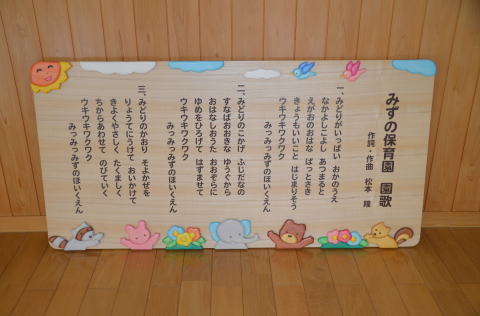 みずの保育園　園歌
作詞・作曲　松本　隆
一、みどりがいっぱい　おかのうえ
なかよしこよし　あつまると
えがおのおはな　ぱっとさき
きょうもいいこと　はじまりそう
ウキウキワクワク
みっつみっつみずのほいくえん
二、みどりのこかげ　ふじだなの
すなばおおきな　ゆうぐから
おはなしおうた　おおぞらに
ゆめをひろげて　はずませて
ウキウキワクワク
みっつみっつみずのほいくえん
三、みどりのかおり　そよかぜを
りょうてにうけて　おいかけて
きよくやさしく　たくましく
ちからあわせて　のびていく
ウキウキワクワク
みっつみっつみずのほいくえん